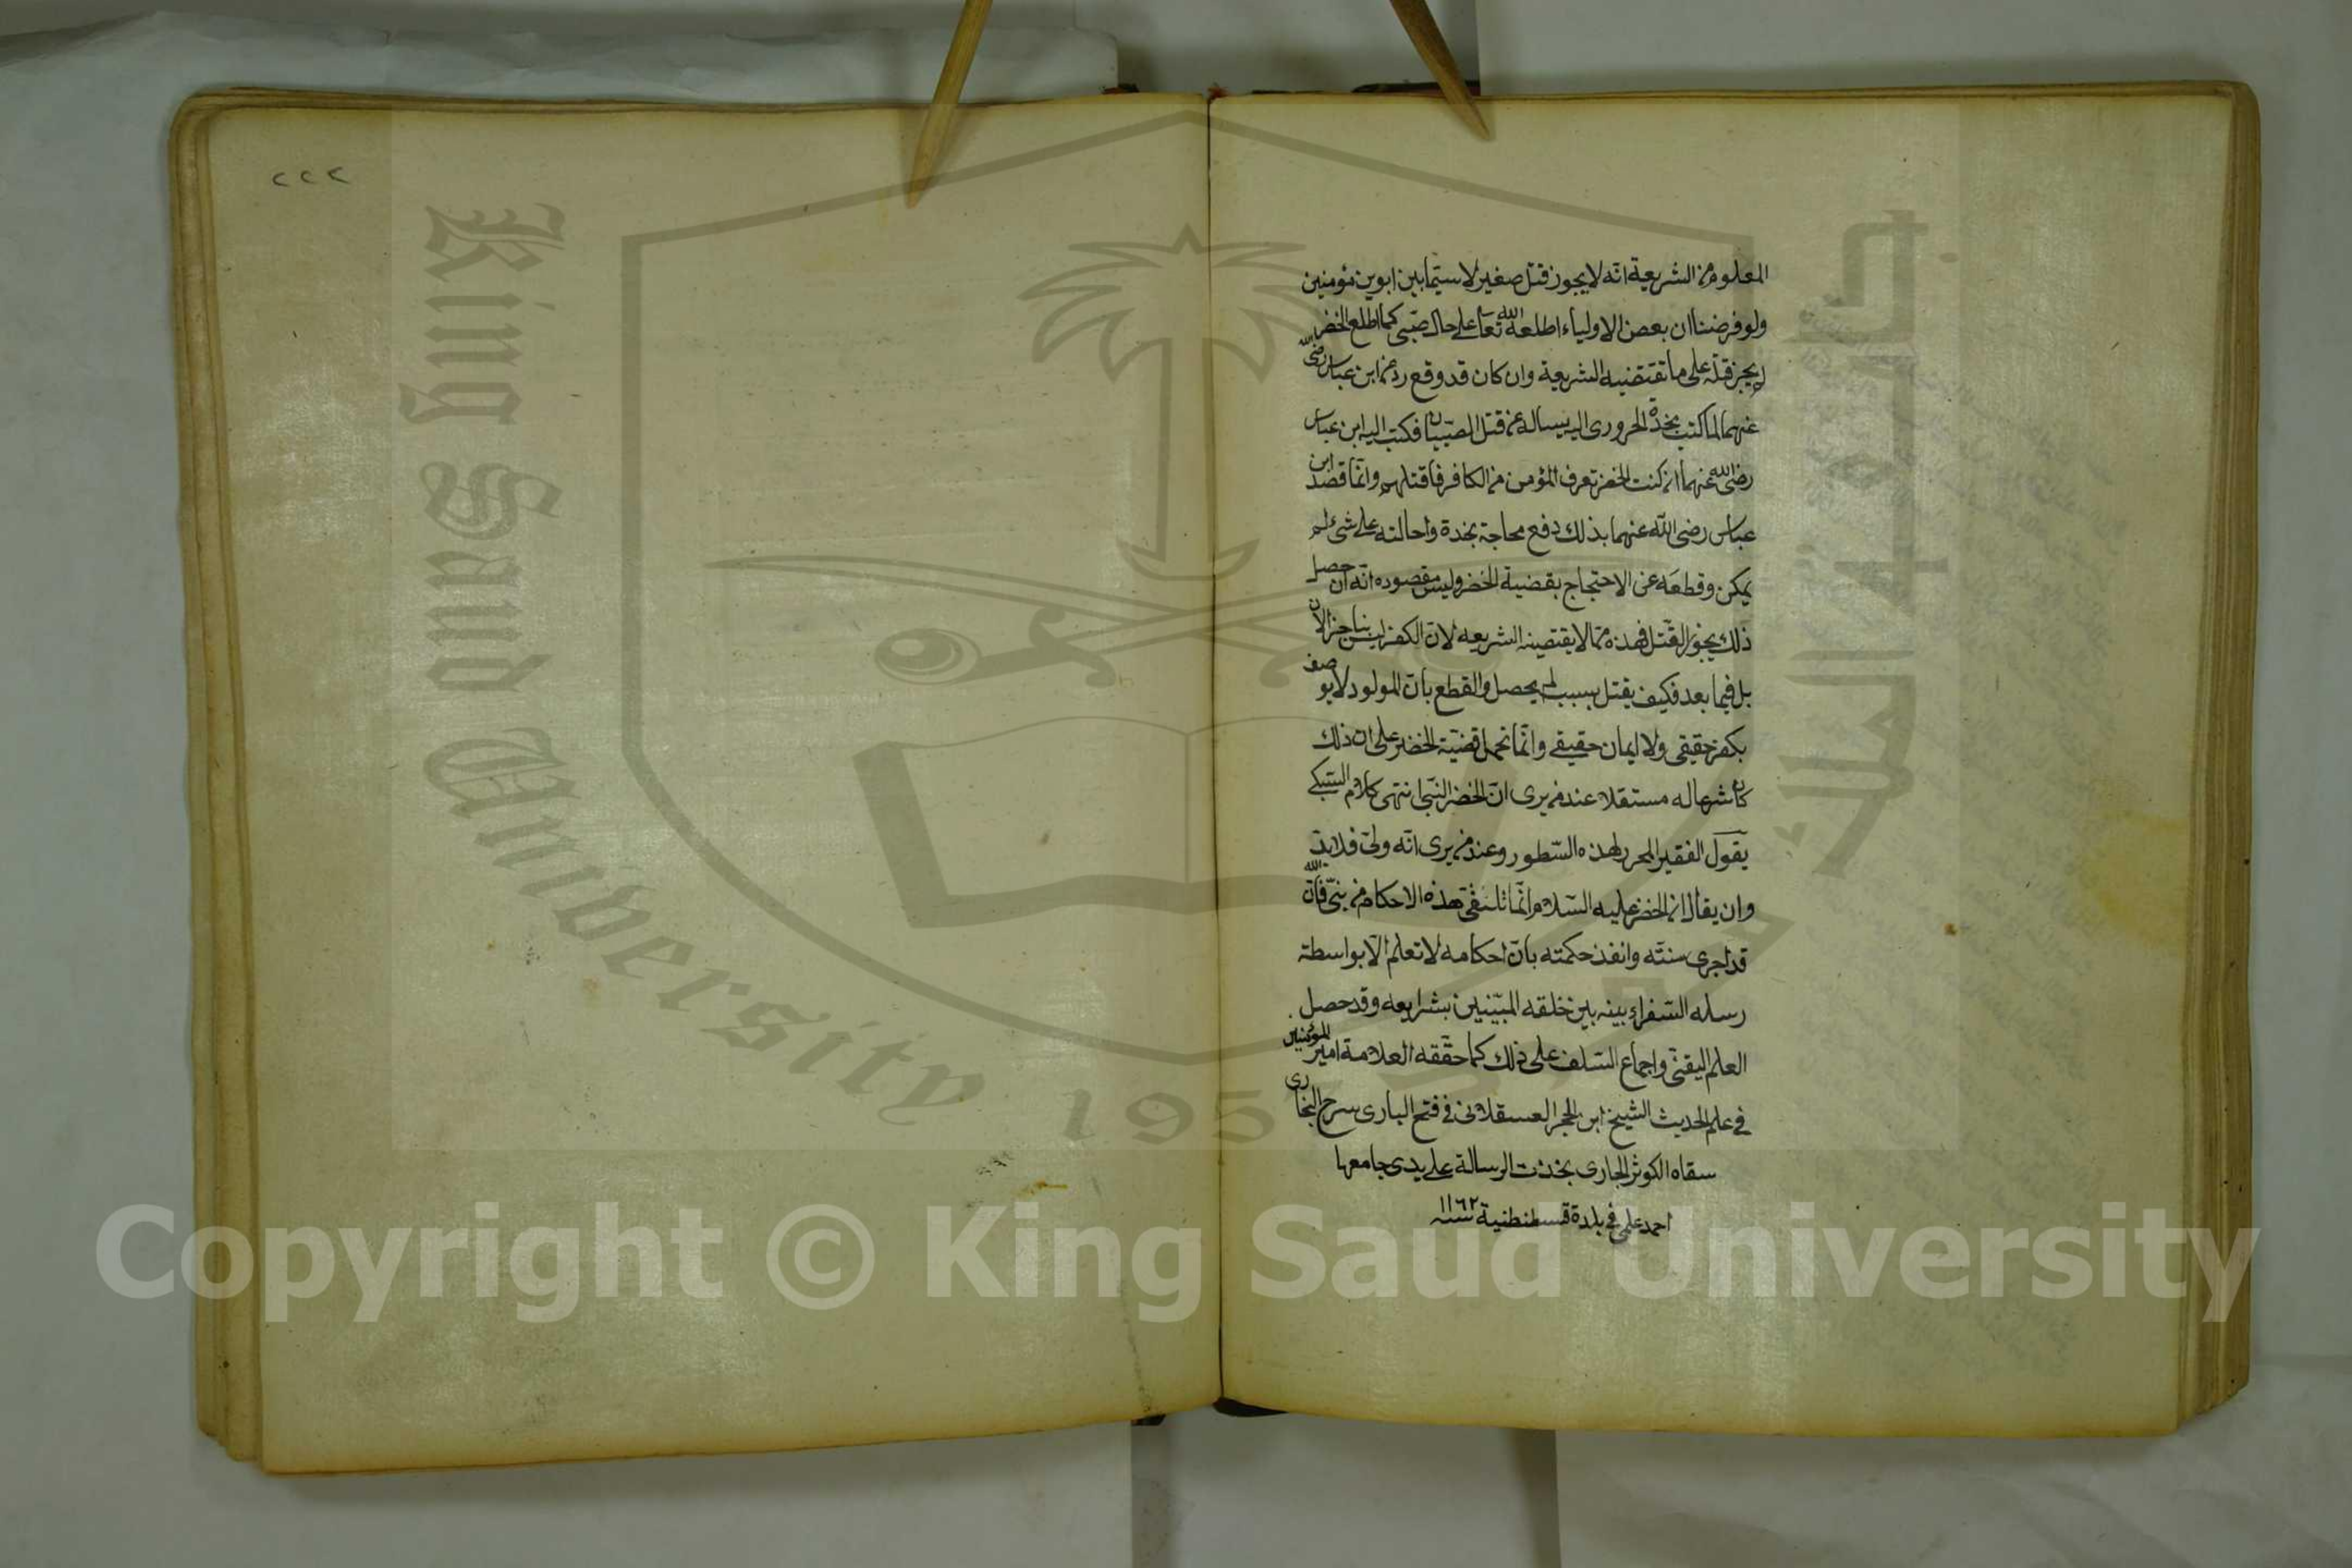 المعلوم من الشريعة انه لا يجوز قتل صغير لا سيما بين ابوين مؤمنين
ولو فرضنا ان بعض الاولياء اطلعه الله تعا على حال صبي كما اطلع الخضر
لم يجز قتله على ما تقتضيه الشريعة وان كان قد وقع رد من ابن عباس رضي الله
عنهما لما كتب نجدة الحروري اليه يساله عن قتل الصبيان فكتب اليه ابن عباس
رضي الله عنهما ان كنت الخضر تعرف المؤمن من الكافر فاقتلهم وانما قصد ابن
عباس رضي الله عنهما بذلك دفع محاجة نجدة واحالته على شئ لم
يمكن وقطعه عن الاحتجاج بقضية الخضر وليس مقصوده انه ان حصل
ذلك يجوز القتل فهذه مما لا يقتضيه الشريعه لان الكفر ليس بناجز الان
بل فيما بعد فكيف يقتل بسبب لم يحصل والقطع بان المولود لا يوصف
بكفر حقيقي ولا ايمان حقيقي وانما نحمل قضية الخضر على ان ذلك
كان شرعا له مستقلا عند من يرى ان الخضر النبي انتهى كلام السبكي
يقول الفقير المحرر لهذه السطور وعند من يرى انه ولي فلا بد
وان يقال ان الخضر عليه السلام انما تلقى هذه الاحكام من نبي فان الله
قد اجرى سنته وانفذ حكمته بان احكامه لا تعلم الا بواسطة
رسله السفراء بينه بين خلقه المبينين بشرايعه وقد حصل
العلم اليقني واجماع السلف على ذلك كما حققه العلامة امير المؤمنين
في علم الحديث الشيخ ابن الحجر العسقلاني في فتح الباري سرح البخاري
سقاه الكوثر الجاري نجزت الرسالة على يدي جامعها
احمد علمي في بلدة قسطنطنية سنه ١١٦٢
٢٢٢
King Saud University
195
Copyright © King Saud University